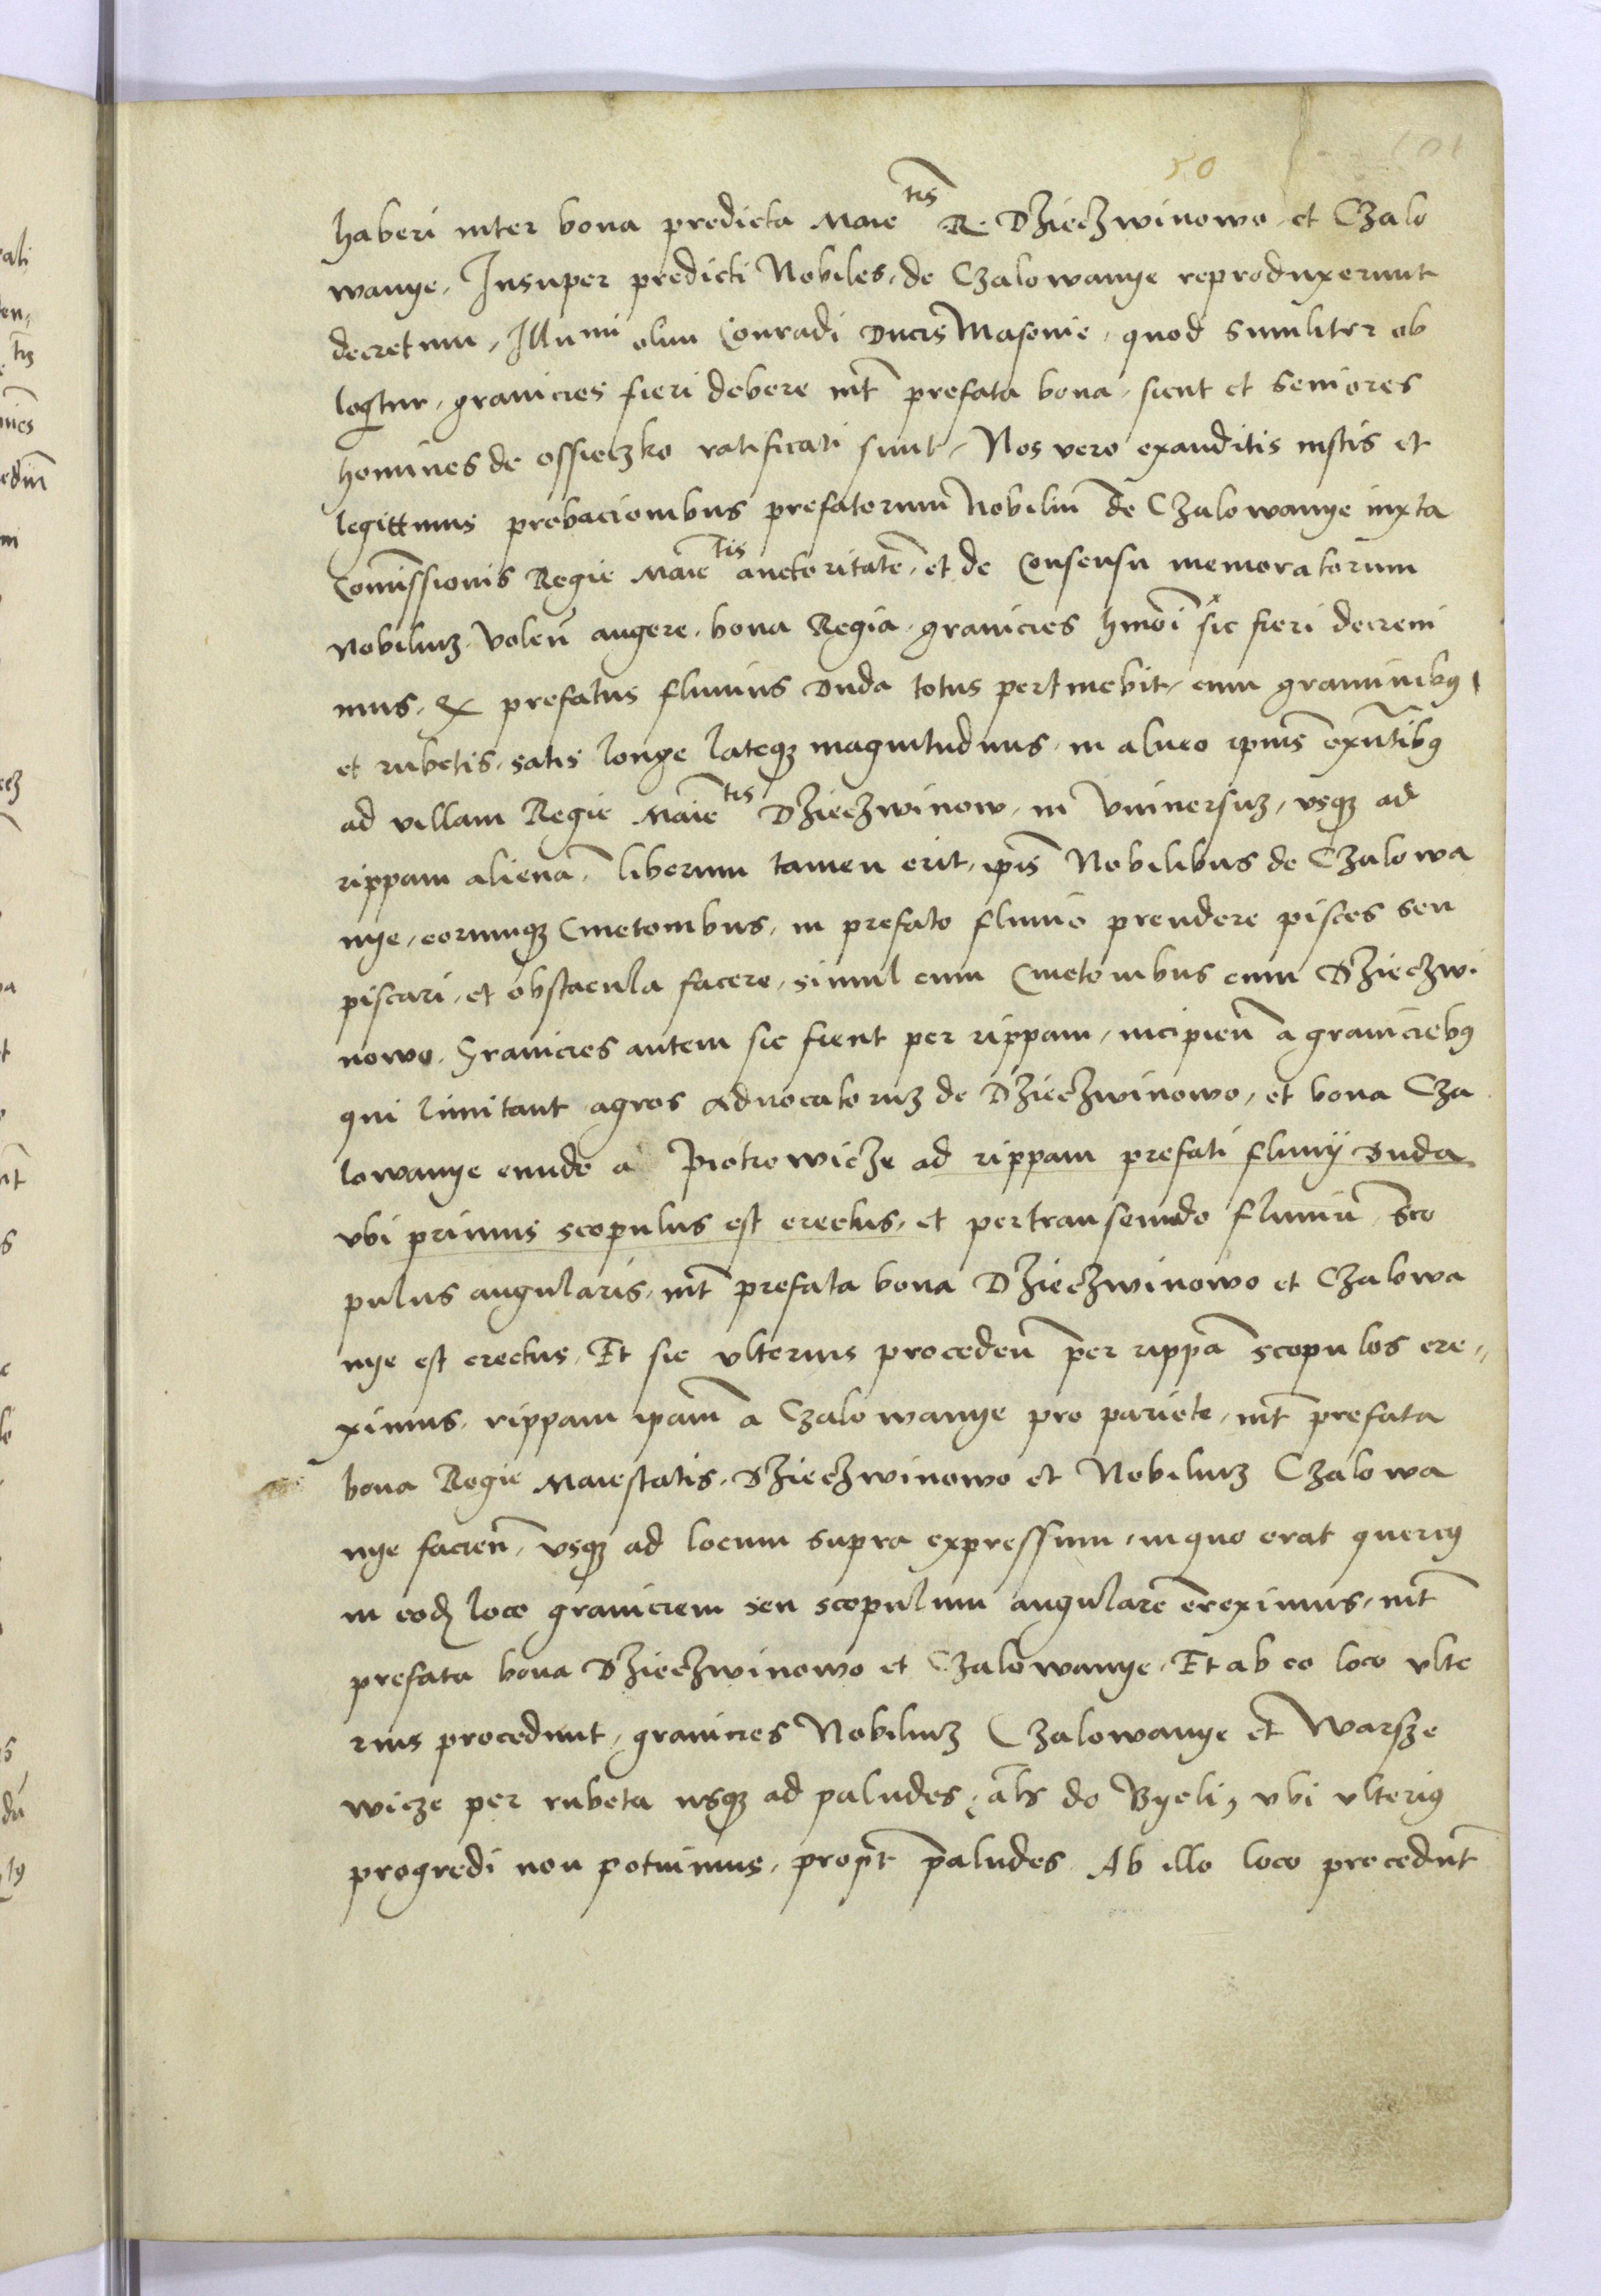 50
101
haberi inter bona predicta Maie^tis R. Dzieczwinowo et Czalo
wanye, Insuper predicti Nobiles, de Czalowanye reproduxerunt
decretum, Illu^mi olim Conradi Ducis Masovie, quod similiter ob
loqtur, granicies fieri debere int̄ prefata bona, sicut et seniores
homines de ossieczko ratificati sunt, Nos vero exauditis iustis et
legittimis probacionibus prefatorum Nobiliū de Czalowanye iuxta
Com̄issionis Regie Maie^tis auctoritatē, et de Consensu memoratorum
Nobiliuʒ volen̄ augere, bona Regia, granicies hmōi sic fieri decrevi
mus, Qͅ prefatus fluvius Duda totus pertinebit, cum graminibꝯ
et rubetis, satis longe lateqʒ magnitudinis, in alveo ipiūs exn̄tibꝯ
ad villam Regie Maie^tis Dzieczwinow, in Universuʒ, usqʒ ad
rippam alienā, liberum tamen erit, ip̄is Nobilibus de Czalowa
nye, eorumqʒ Cmetonibus, in prefato fluvio prendere pisces seu
piscari, et obstacula facere, simul cum Cmetonibus cum Dzieczwi
nowo, Granicies autem sic fient per rippam, incipien̄ a graniciebꝯ
qui limitant agros Advocatoruʒ de Dzieczwinowo, et bona Cza
lowanye eundo a Piotrowicze ad rippam prefati fluvij Duda
ubi primus scopulus est erectus, et pertranseundo fluviū, Sco
pulus angularis, int̄ prefata bona Dzieczwinowo et Czalowa
nye est erectus, Et sic ulterius proceden̄ per rippā scopulos ere„
ximus, rippam ipam̄ a Czalowanye pro pariete, int̄ prefata
bona Regie Maiestatis, Dzieczwinowo et Nobiliuʒ Czalowa
nye facien̄, usqʒ ad locum supra expressum, in quo erat quercꝯ
in eodʒ loco graniciem seu scopulum angularē ereximus, int̄
prefata bona Dzieczwinowo et Czalowanye, Et ab eo loco ulte
rius procedunt, granicies Nobiliuʒ Czalowanye et Warsze
wicze per rubeta usqʒ ad paludes, al̄s do Byeli, ubi ulteriꝯ
progredi non potuimus, propt̄ paludes Ab illo loco procedūt